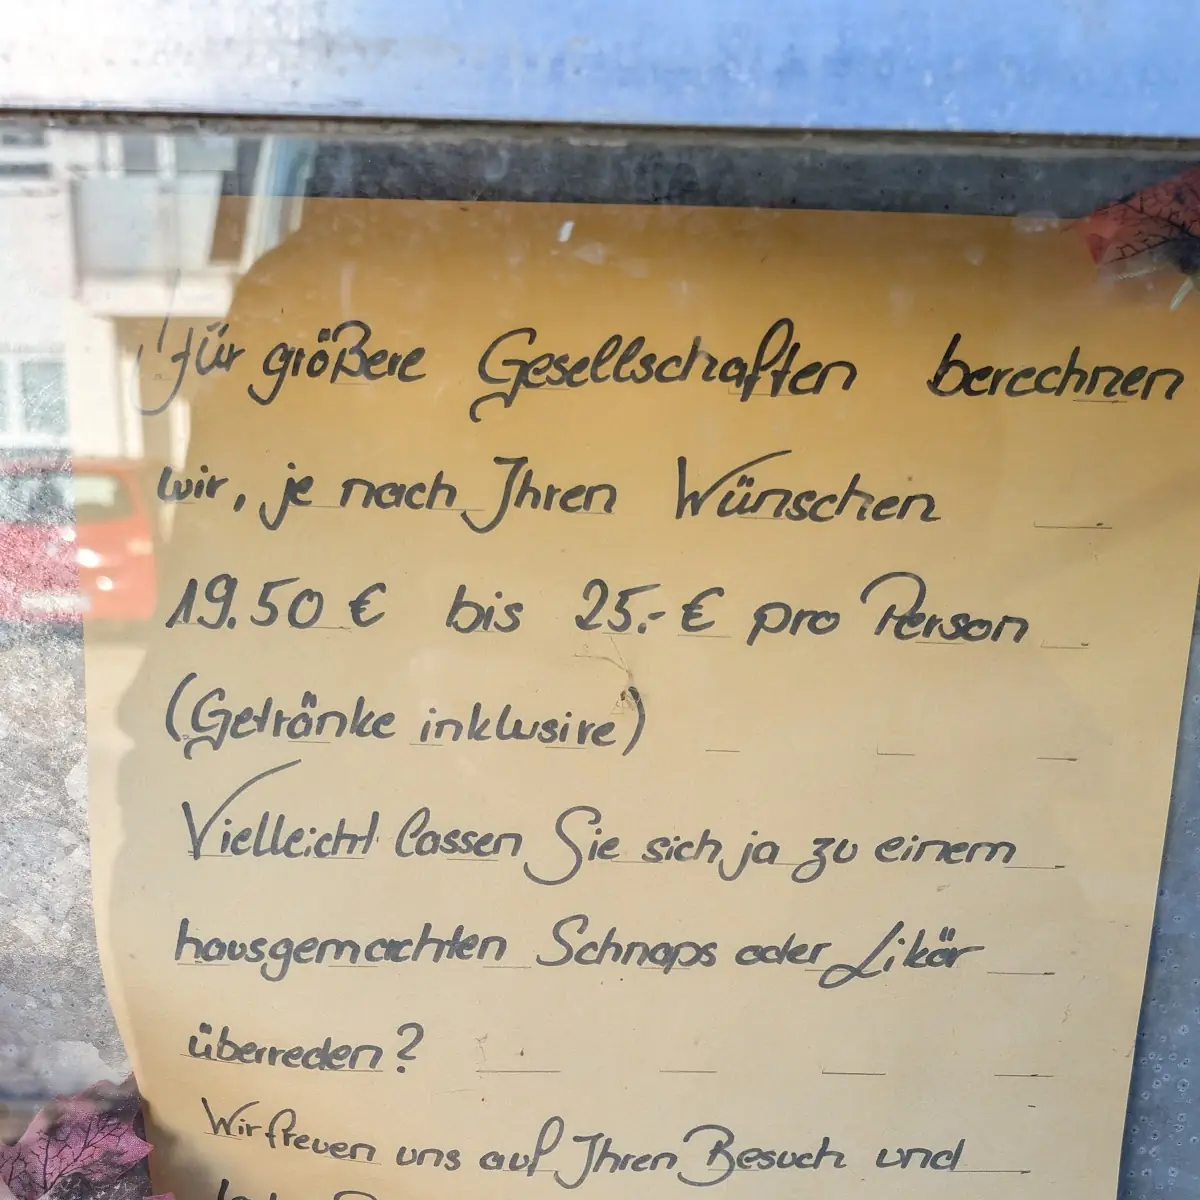 Für größere Gesellschaften berechnen
wir, je nach Ihren Wünschen
19.50 € bis 25.- € pro Person
(Getränke inklusive)
Vielleicht lassen Sie sich ja zu einem
hausgemachten Schnaps oder Likör
überreden?
Wir freuen uns auf Ihren Besuch und